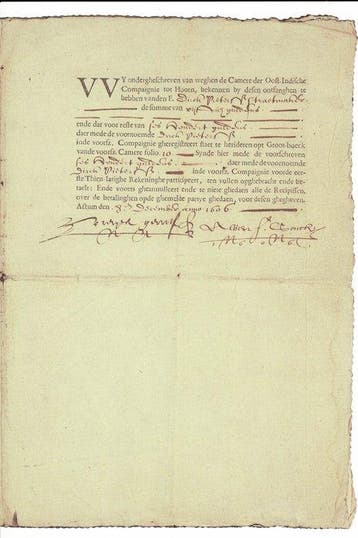 VVY ondergheschreven van weghen de Camere der Oost-Indische
Compaignie tot Hoorn, bekennen by desen ontfanghen te
hebben vanden E. Dirck Pieter
de somme van guldens
ende dat voor reste van ses hondert guldens
daer mede de voornoemde Dirck Pieter
inde voorsz. Compaignie gheregistreert staet te herideren opt Groot-boeck
vande voorsz. Camere folio 10 Synde hier mede de voorschreven
ses hondert guldens daer mede de voornoemde
Dirck Pieter inde voorsz. Compaignie voorde eer-
ste Thien-Iarighe Rekeninghe participeert, ten vollen opghebracht ende be-
taelt: Ende voorts gheannulleert ende te niete ghedaen alle de Recipissen,
over de betalinghen opde ghemelte partye ghedaen, voor desen ghegheven.
Actum den December anno 1606